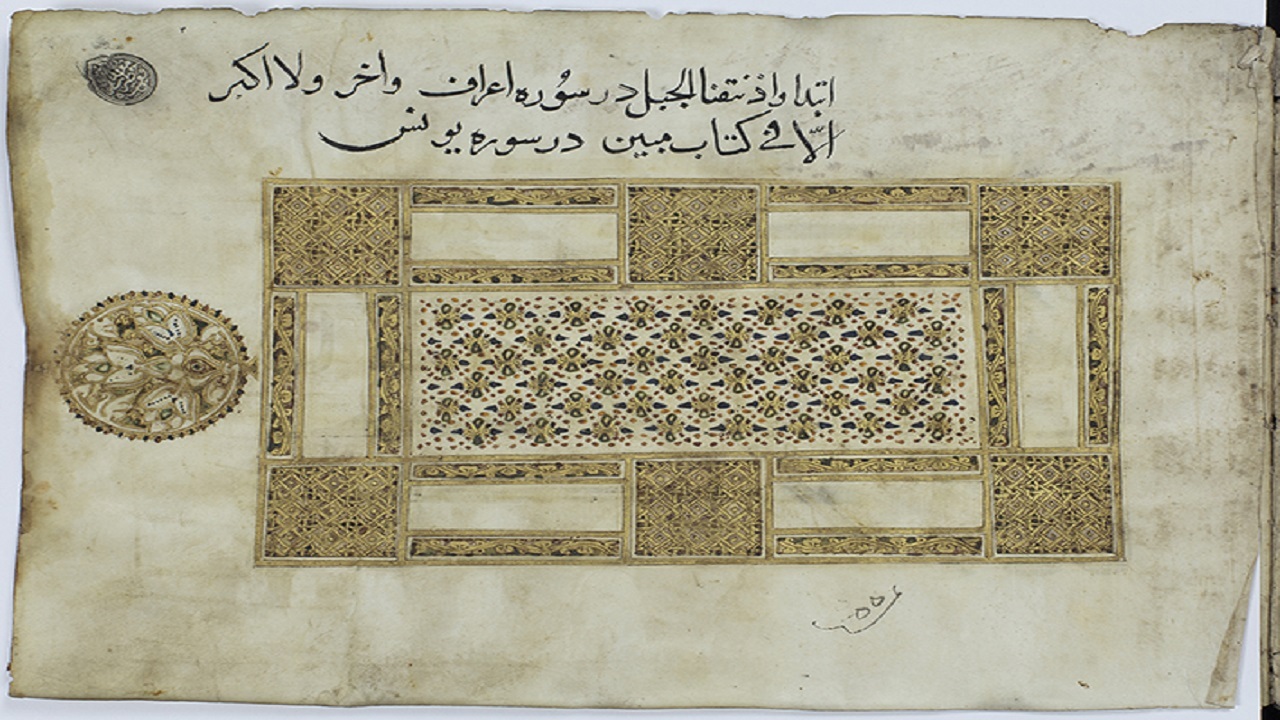 ابتدا واذ نتقنا الجبل در سُوره اعراف واخر ولا اكبر
الّا فى كتاب مبين در سوره يونس